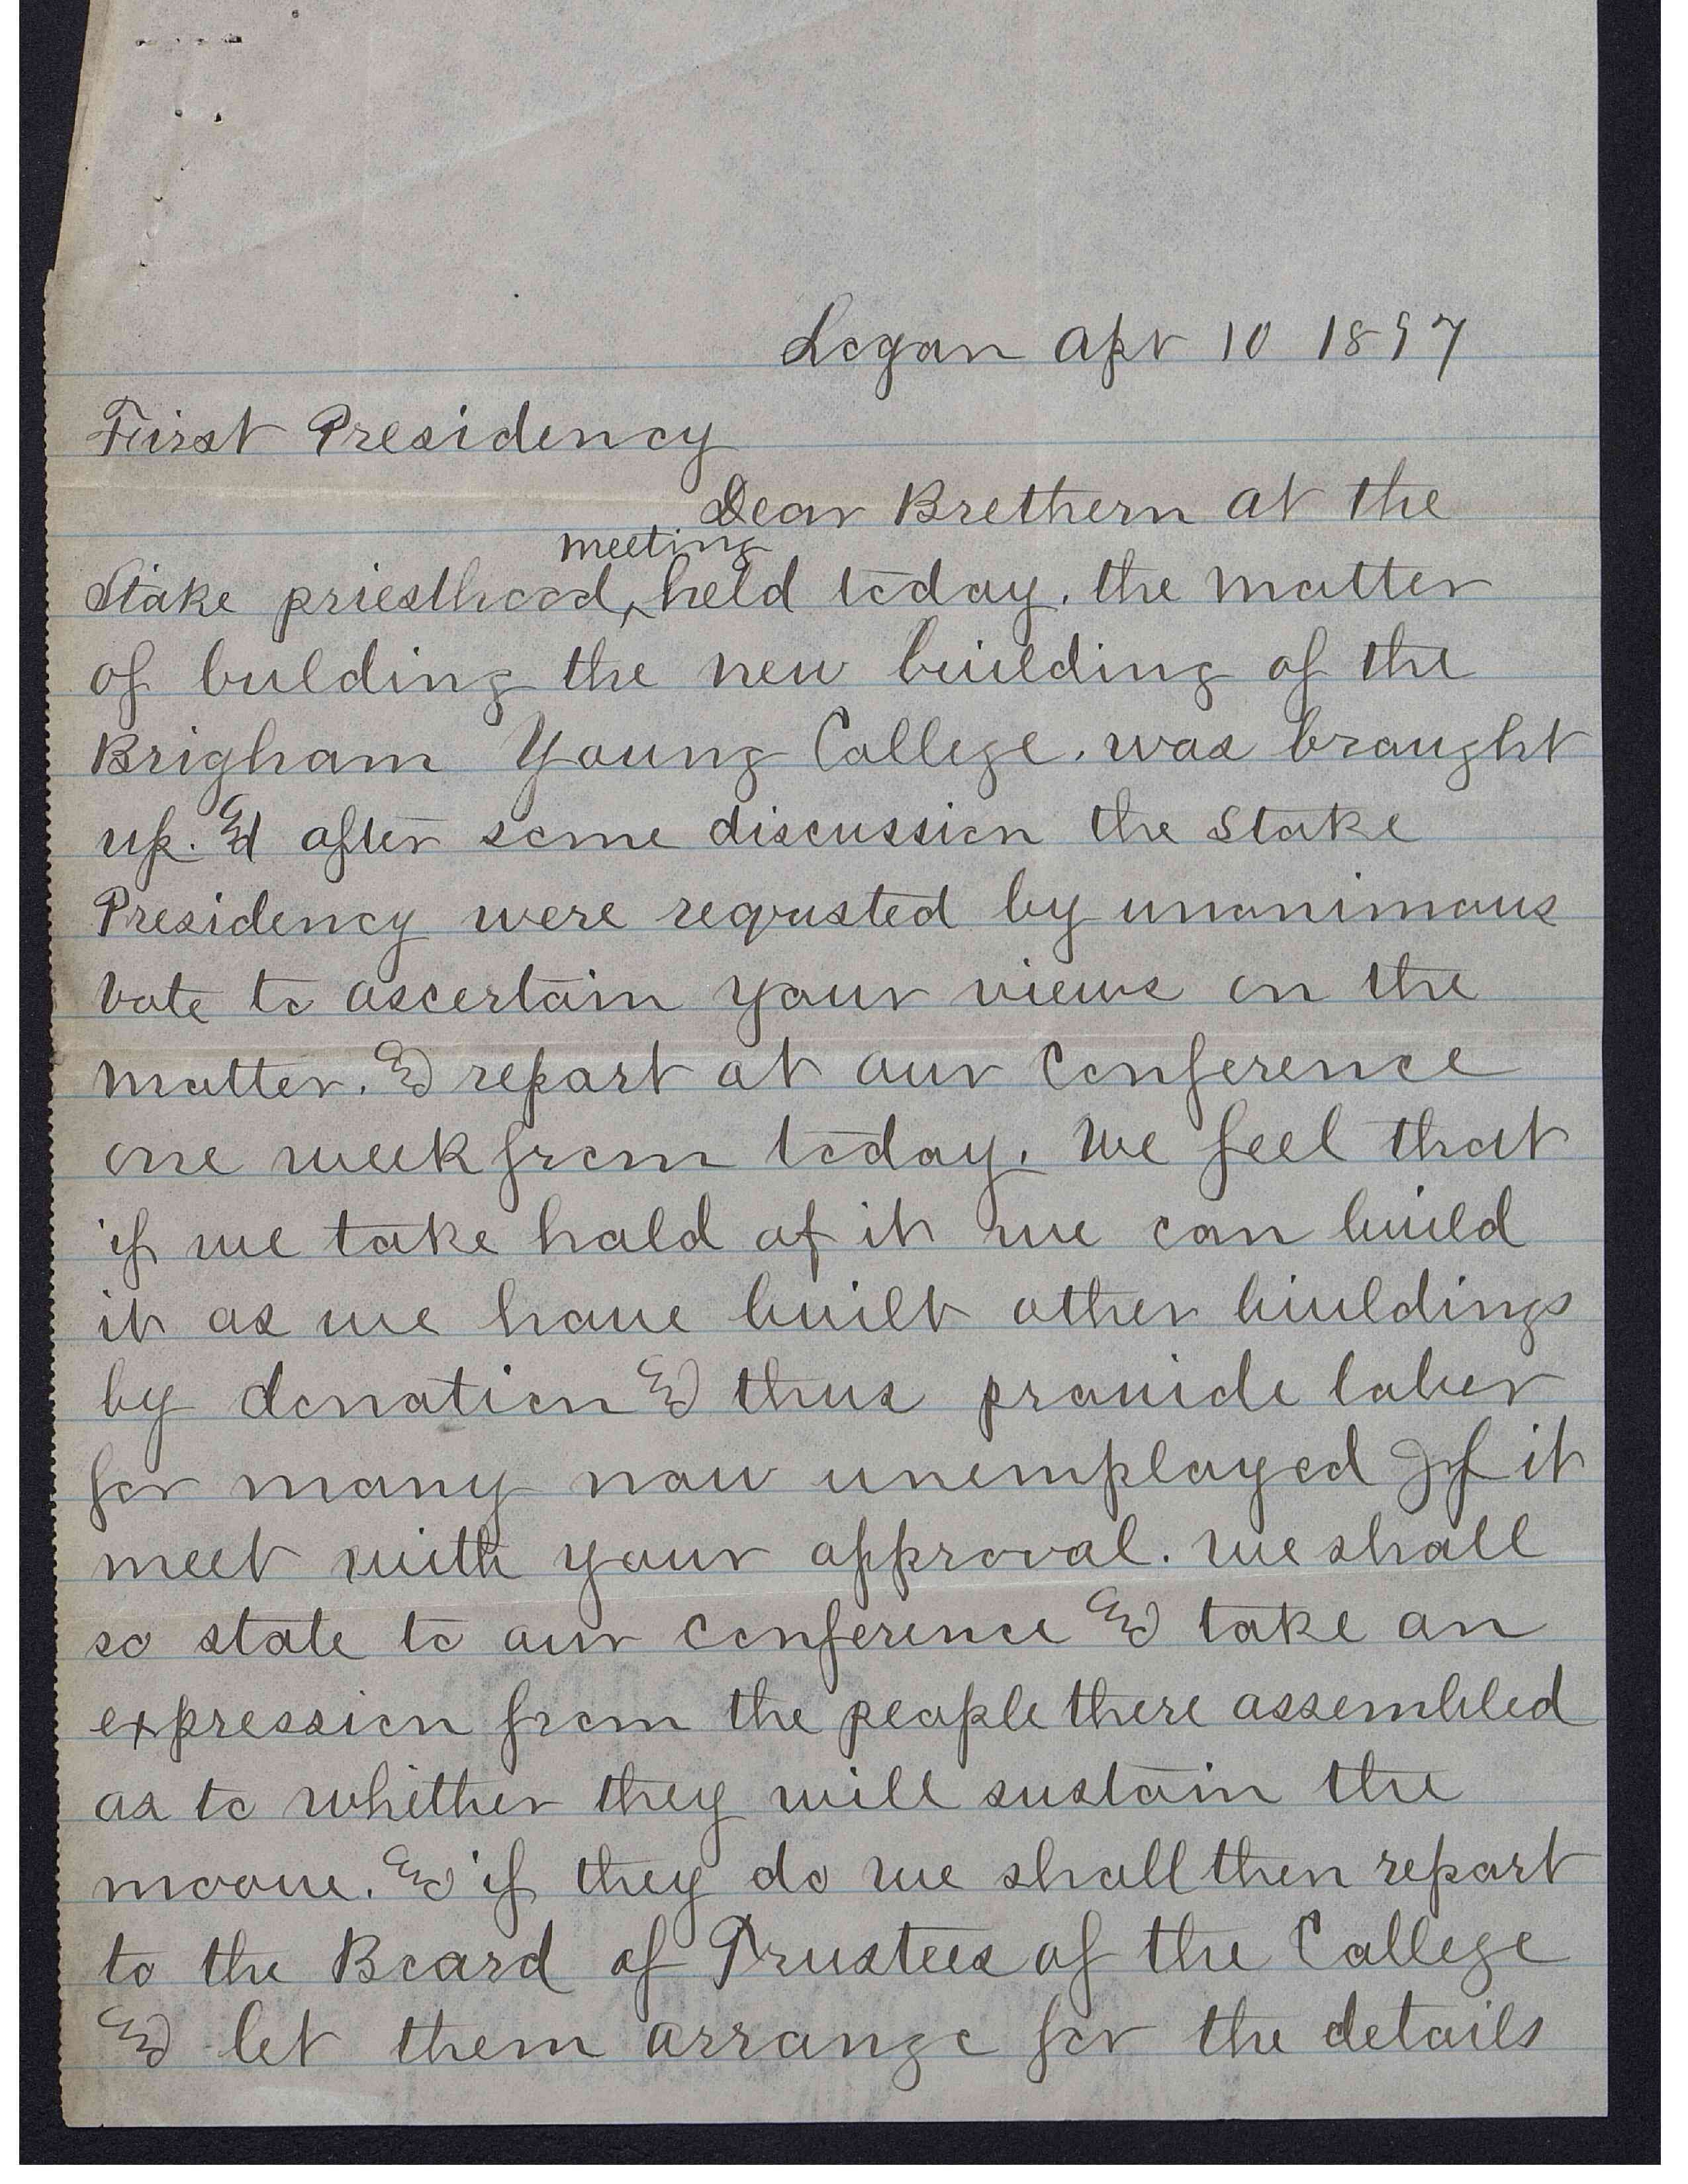 Logan Apr 10 1897
First Presidency
Dear Brethern at the
meeting
Stake priesthood, held today. the matter
of bulding the new building of the
Brigham Young College. was brought
up. & after some discussion the Stake
Presidency were requsted by unanimous
vote to ascertain your views on the
matter. & report at our Conference
one week from today. We feel that
if we take hold of it we can build
it as we have built other buildings
by donation & thus provide labor
for many now unemployed If it
meet with your approval. we shall
so state to our Conference & take an
expression from the people there assembled
as to whither they will sustain the
moove. & if they do we shall then report
to the Board of Trustees of the College
& let them arrange for the details